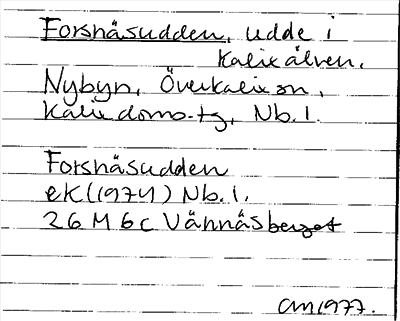 Forsnäsudden, udde i
Kalix älven.
Nybyn, Överkalix sn,
Kalix doms-tg, Nb. l.
Forsnäsudden
ek (1974) Nb. l.
26 M 6 c Vännäsberget
CM 1977.